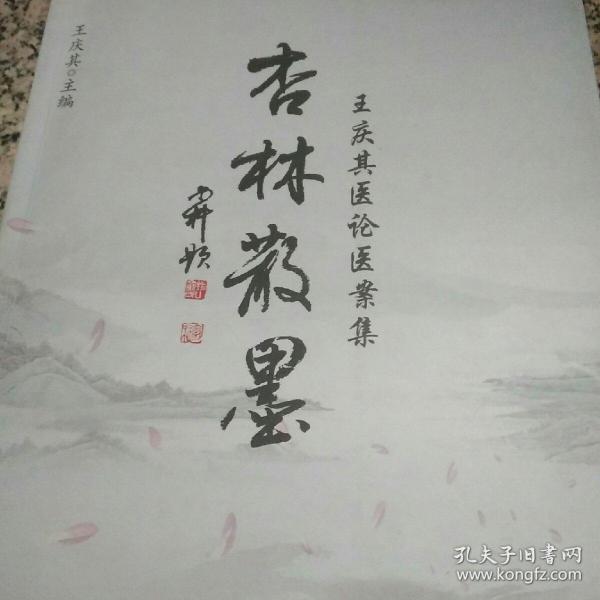 王庆其◎主编
杏林散墨
王庆其医论医案集
孔夫子旧书网
www.kongfz.com